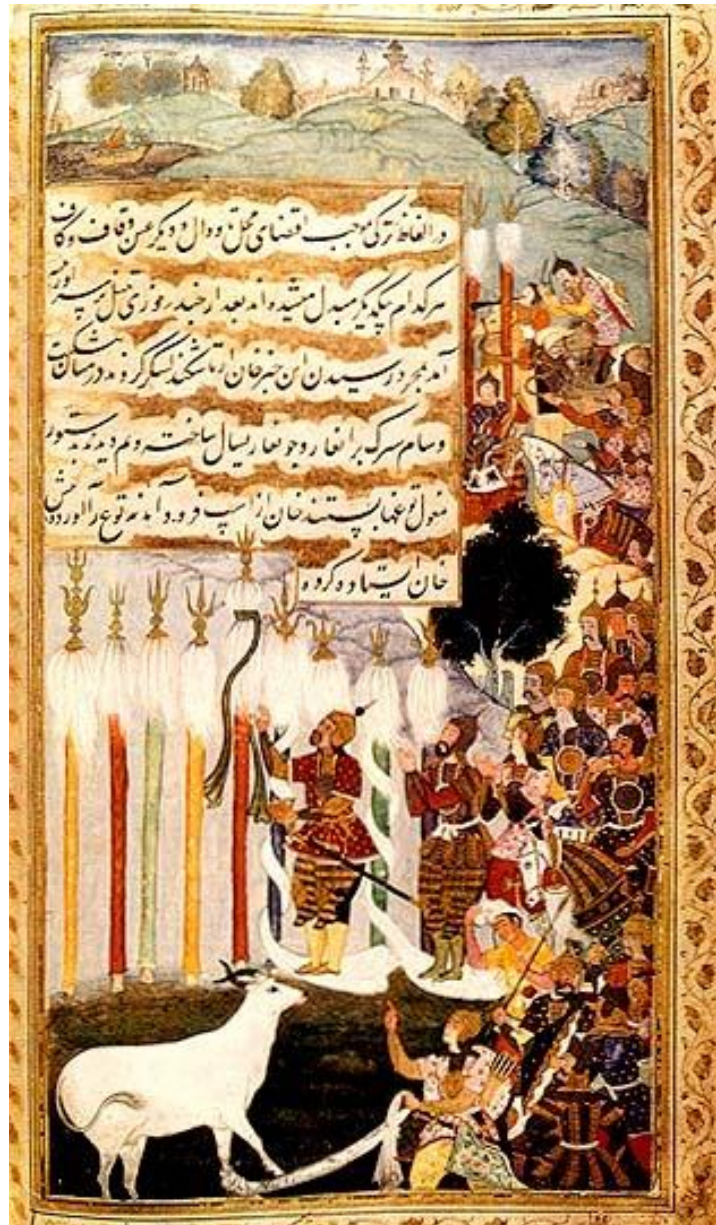 در الفاظ ترکی بموجب اقتضای محل و دال و دیگر عین و قاف و کاف
هر کدام بیکدیگر مبدل میشده اند بعد از چند روزی تنبل بر سر
آمد بمجرد رسیدن این خبر خان از تاشکند لشکر کرده در میان
و سام سرک برانغار و جونغار یسال ساخته و یم دیدند بدستور
مغول توغها بستند خان از اسپ فرود آمد نه توغ را آورده پیش
خان ایستاده کرده